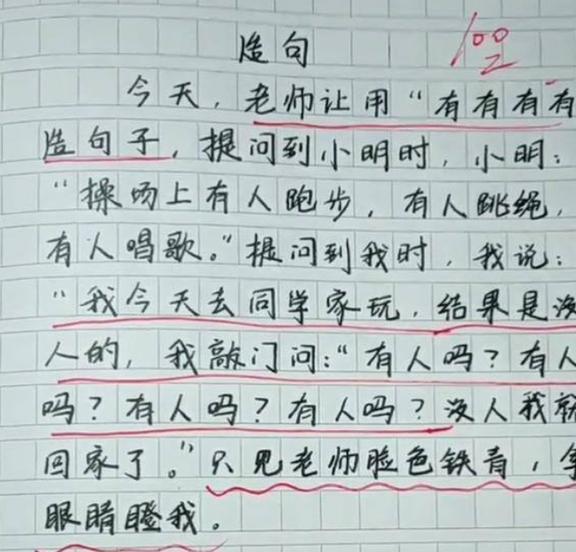 造句
100
今天，老师让用“有有有有
造句子，提问到小明时，小明：
“操场上有人跑步，有人跳绳，
有人唱歌。”提问到我时，我说：
“我今天去同学家玩，结果是没
人的，我敲门问：“有人吗？有人
吗？有人吗？有人吗？没人我就
回家了。”只见老师脸色铁青，拿
眼睛瞪我。